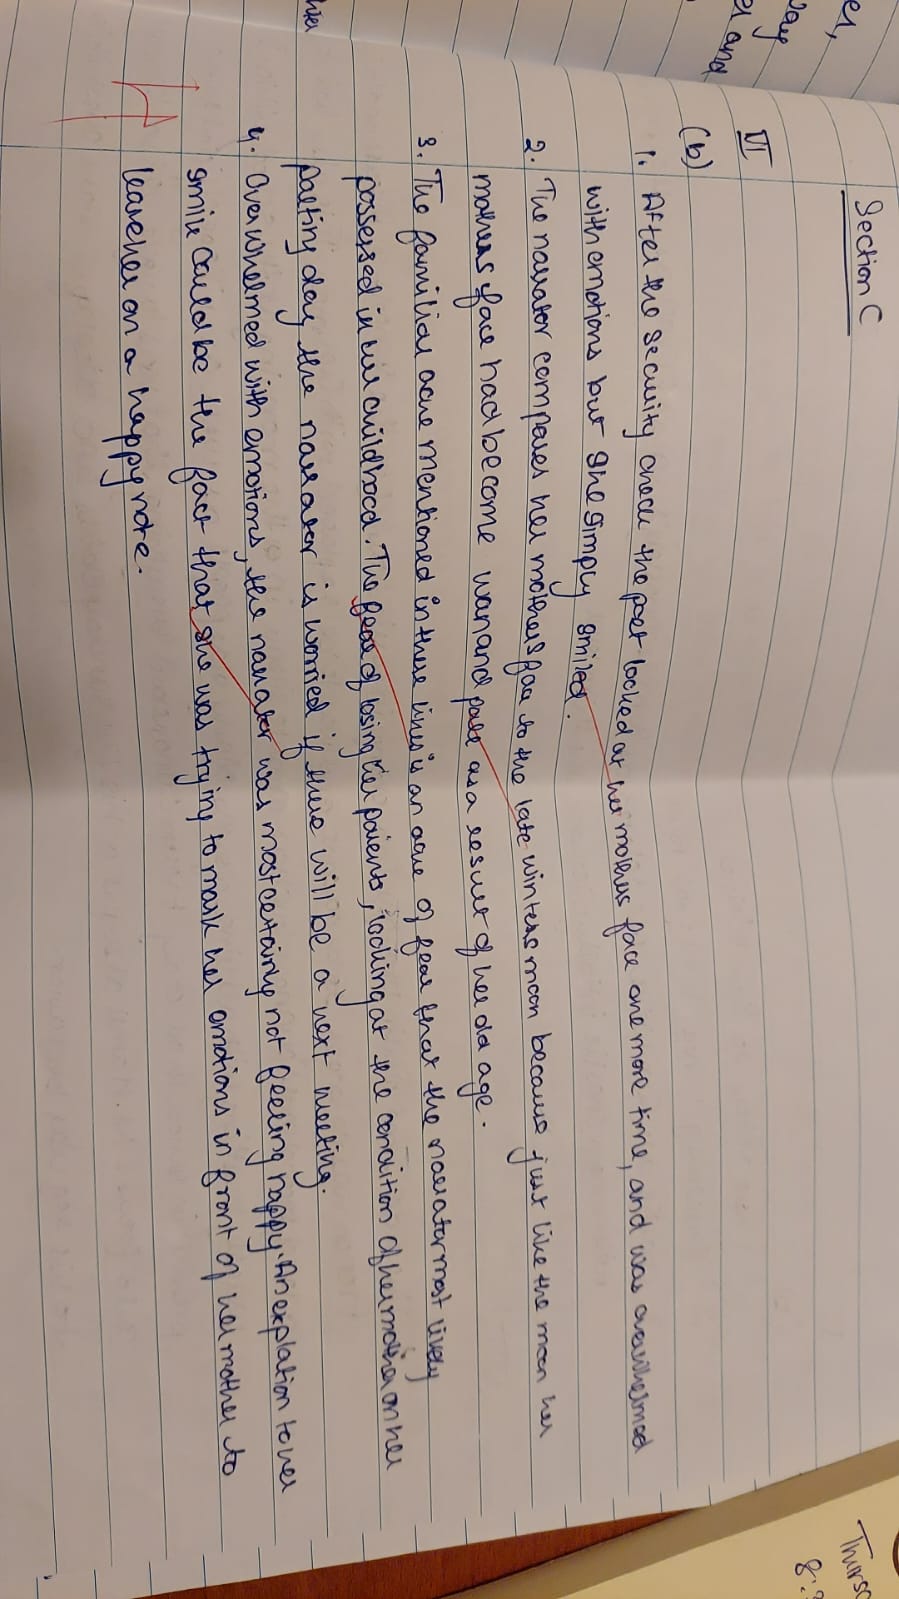 er,
day
er and
Thursd
8:3
Section C
VI
(b)
1. After the security check the poet looked at her mothers face one more time, and was overwhelmed
with emotions but she simply smiled.
2. The narrator compares her mothers face to the late winters moon because just like the moon her
mothers face had become wan and pale as a result of her old age.
3. The familiar ache mentioned in these lines is an ache of fear that the narrator most likely
possessed in her childhood. The fear of losing her parents, looking at the condition of her mother on her
parting day the narrator is worried if there will be a next meeting.
4. Overwhelmed with emotions, the narrator was most certainly not feeling happy. An explation to her
smile could be the fact that she was trying to mask her emotions in front of her mother to
leave her on a happy note.
4